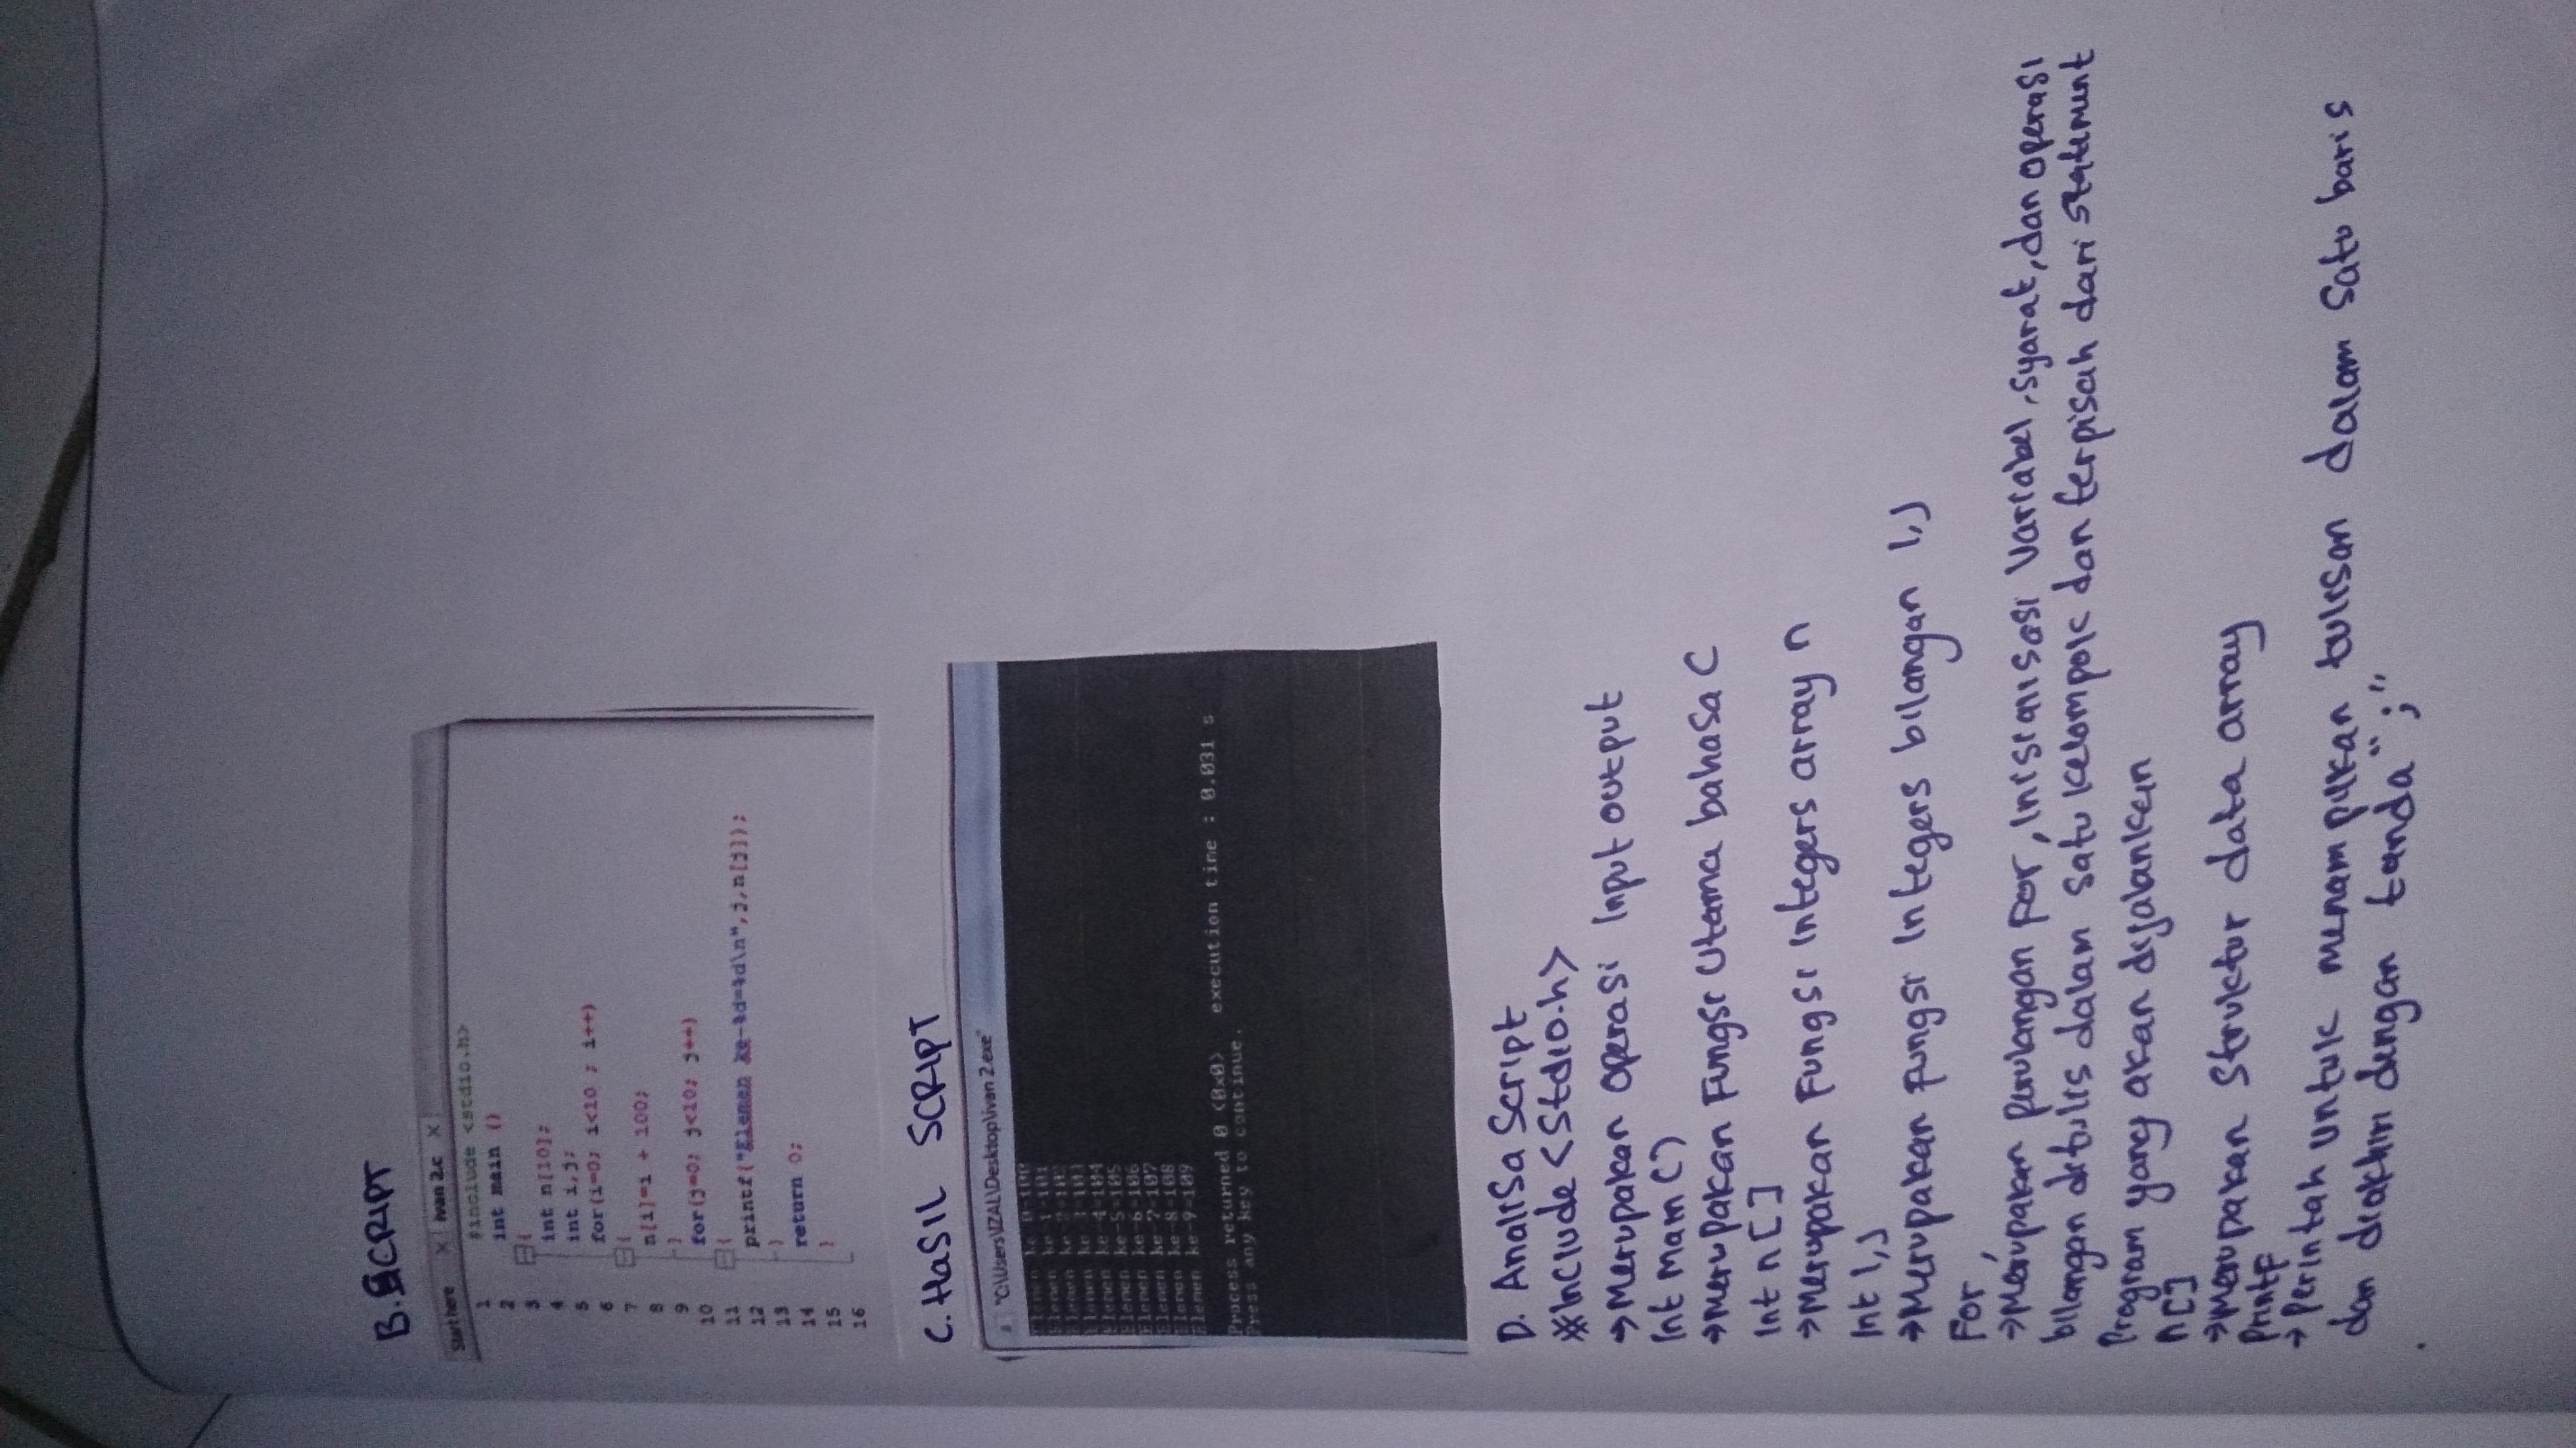 B. SCRIPT
Start here X ivan 2.c X
1 #include <stdio.h>
2 int main ()
3 {
4 int n[10];
5 int i,j;
6 for(i=0; i<10 ; i++)
7 {
8 n[i]=i + 100;
9 }
10 for(j=0; j<10; j++)
11 {
12 printf("Elemen ke-%d=%d\n",j,n[j]);
13 }
14 return 0;
15 }
16
C. HASIL SCRIPT
"C:\Users\IZAL\Desktop\ivan 2.exe"
Elemen ke-0=100
Elemen ke-1=101
Elemen ke-2=102
Elemen ke-3=103
Elemen ke-4=104
Elemen ke-5=105
Elemen ke-6=106
Elemen ke-7=107
Elemen ke-8=108
Elemen ke-9=109
Process returned 0 (0x0) execution time : 0.031 s
Press any key to continue.
D. Analisa Script
#Include <Stdio.h>
→ Merupakan operasi Input output
Int main ()
→ Merupakan Fungsi Utama bahasa C
Int n []
→ Merupakan Fungsi Integers array n
Int i,j
→ Merupakan Fungsi Integers bilangan i,j
For,
→ Merupakan perulangan For, Inisianisasi Variabel, syarat, dan operasi
bilangan ditulis dalam satu kelompok dan terpisah dari statement
Program yang akan dijalankan
n[]
→ Merupakan Struktur data array
Printf
→ Perintah untuk menampilkan tulisan dalam satu baris
dan diakhiri dengan tanda ";"